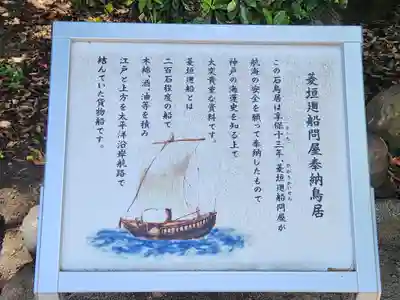 菱垣廻船問屋奉納鳥居
この石鳥居は享保十三年、菱垣廻船問屋が
航海の安全を願って奉納したもので
神戸の海運史を知る上で
大変貴重な資料です。
菱垣廻船とは
二百石程度の船で
木綿、酒、油等を積み
江戸と上方を太平洋沿岸航路で
結んでいた貨物船です。